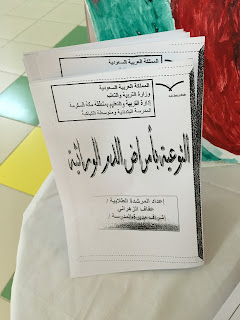 المملكة العربية السعودية
المملكة العربية السعودية
وزارة التربية والتعليم
إدارة التربية والتعليم بمنطقة مكة المكرمة
المدرسة الابتدائية ومتوسطة
التوعية بأمراض الدم الوراثية
إعداد المرشدة الطلابية /
عفاف الزهراني
إشراف مديرة المدرسة /